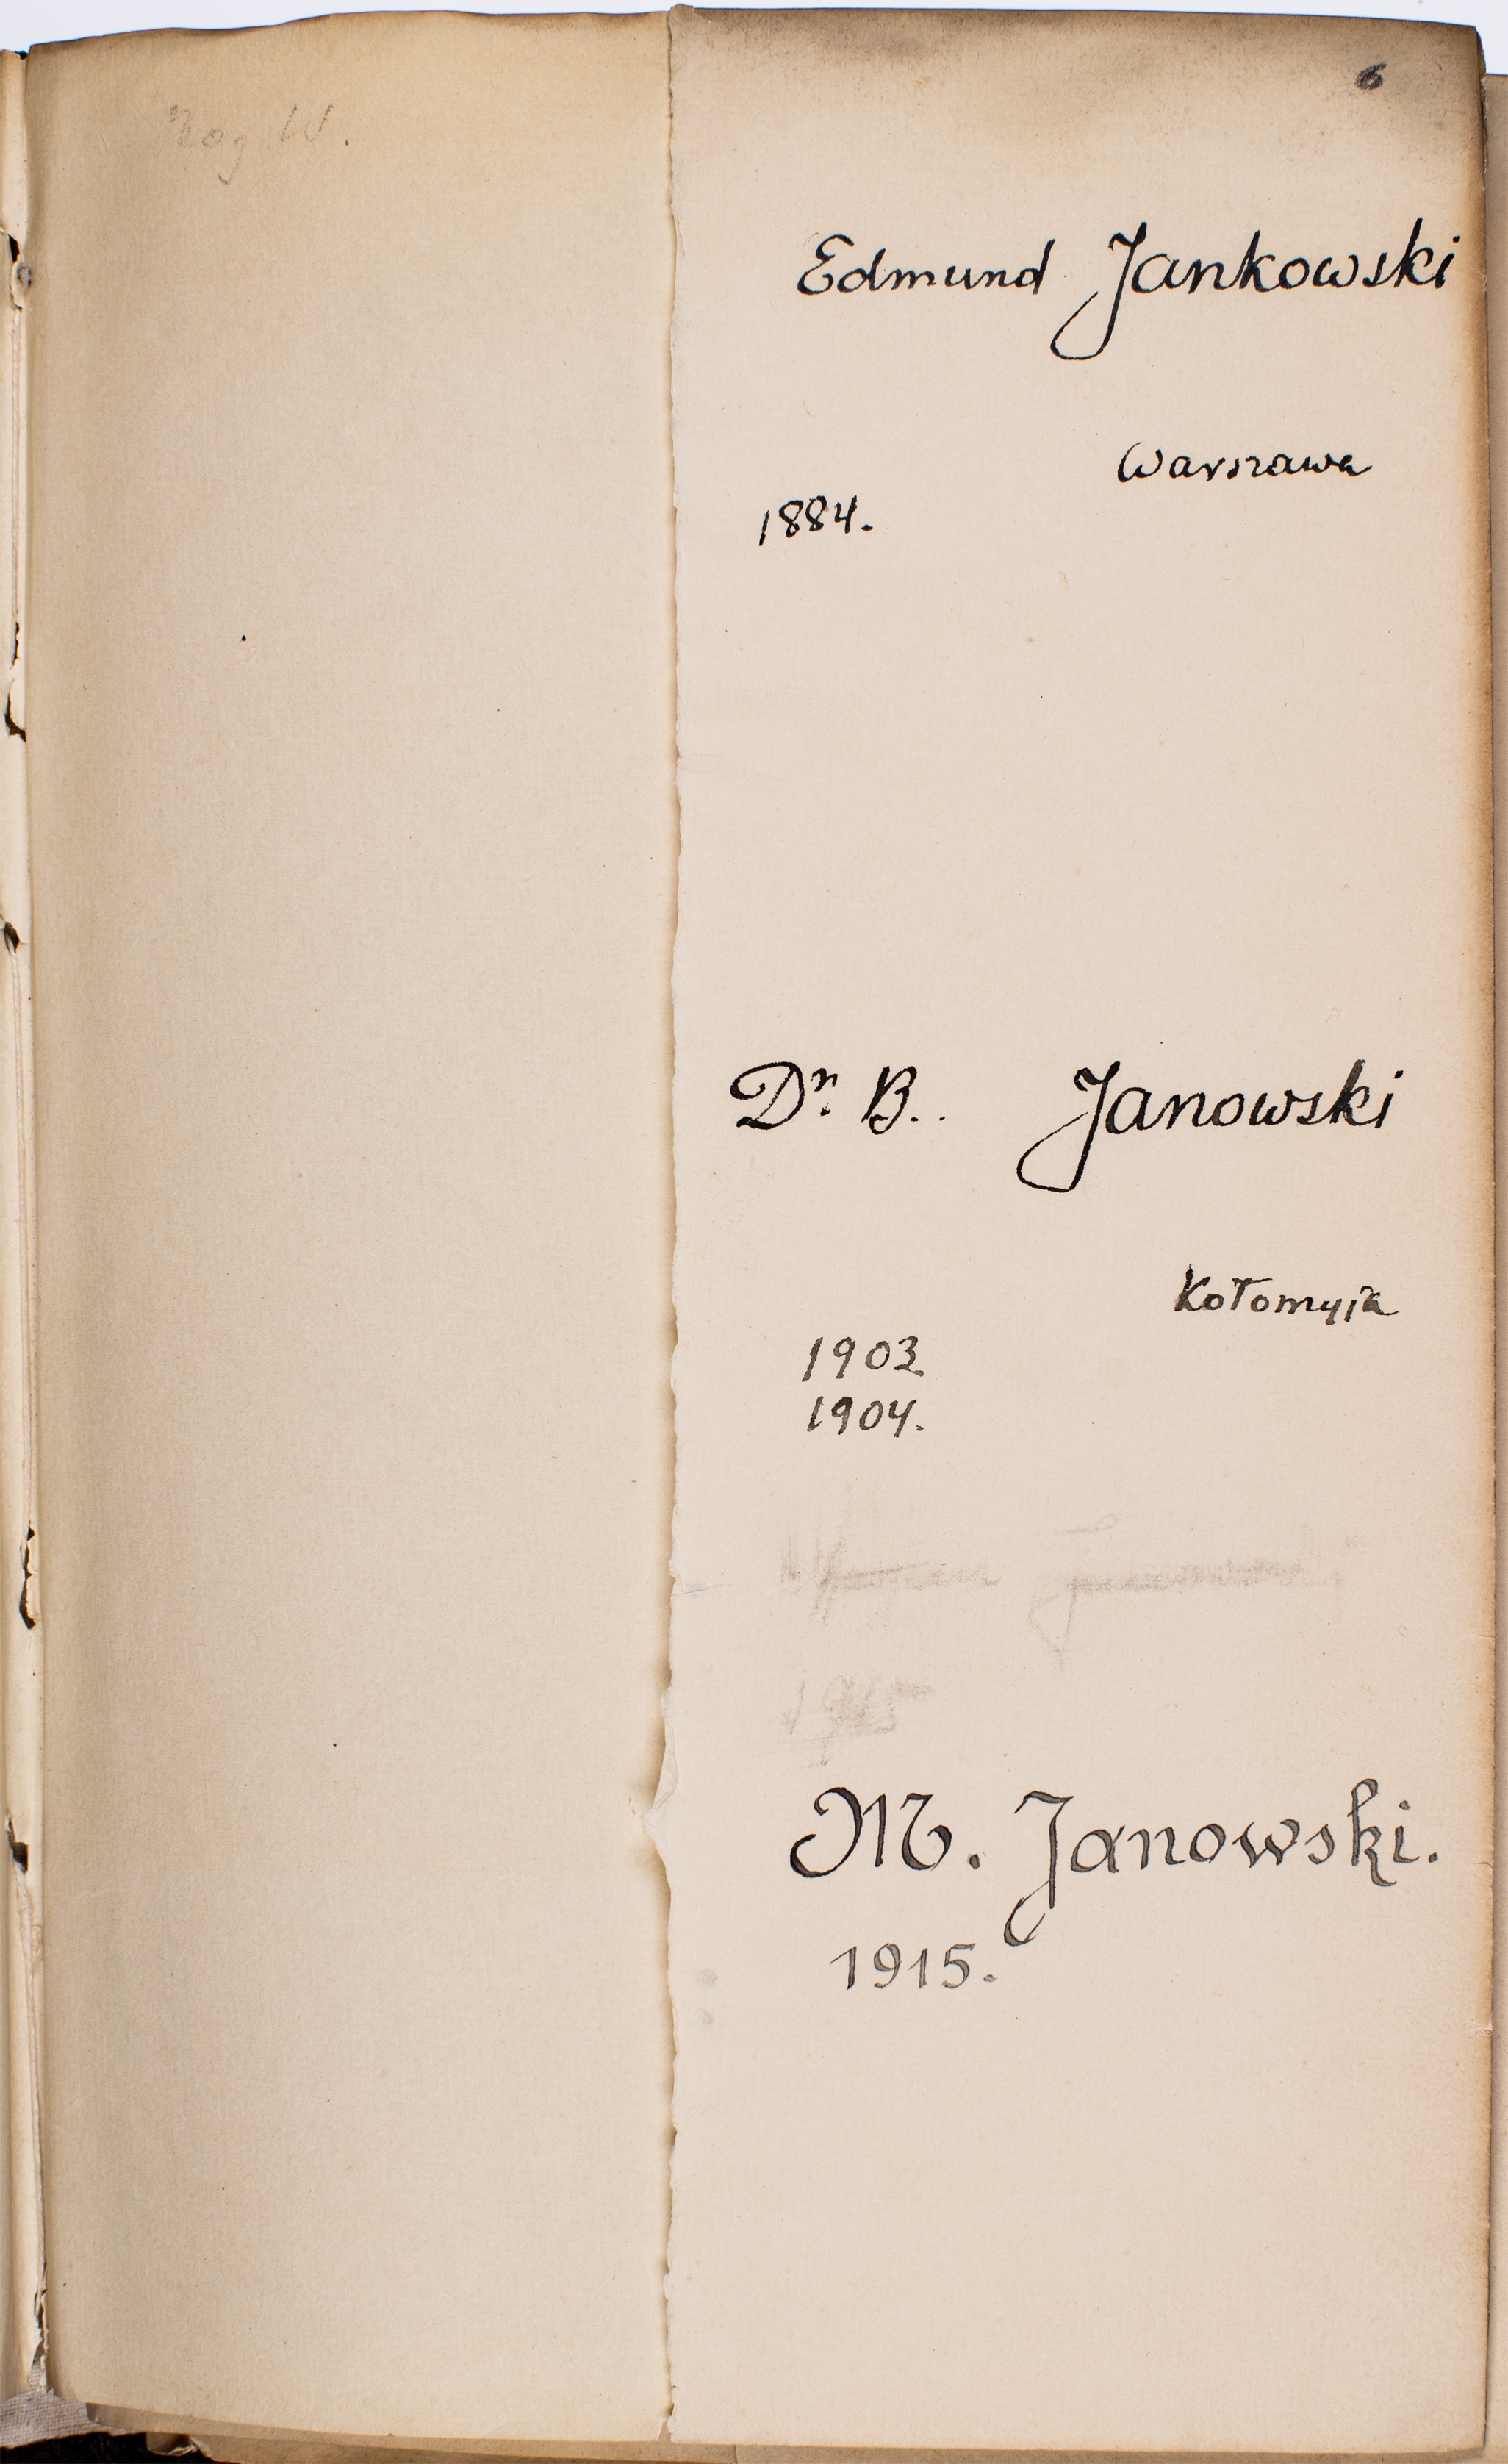 6
Edmund Jankowski
Warszawa
1884.
Dr. B..  Janowski
Kołomyja
1903
1904.
1915
M. Janowski.
1915.